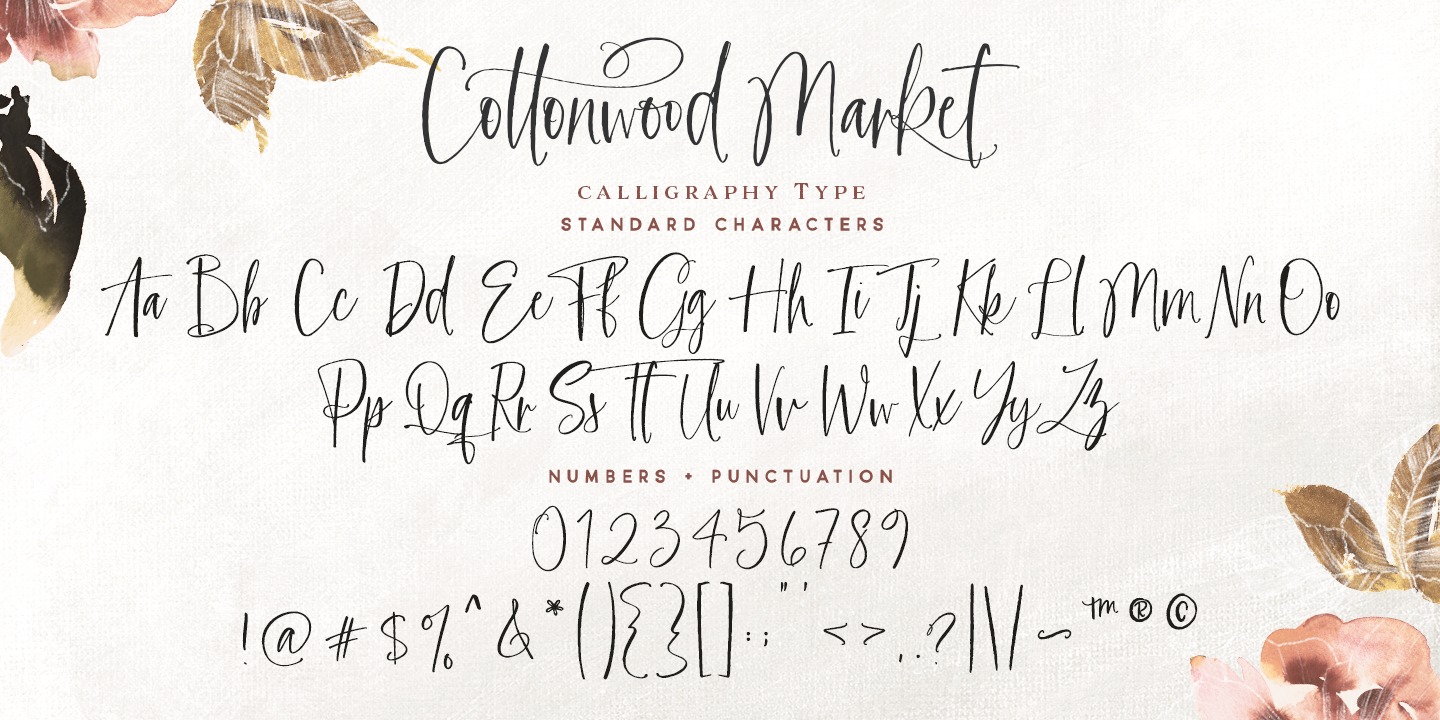 Cottonwood Market
CALLIGRAPHY TYPE
STANDARD CHARACTERS
Aa Bb Cc Dd Ee Ff Gg Hh Ii Jj Kk Ll Mm Nn Oo
Pp Qq Rr Ss Tt Uu Vv Ww Xx Yy Zz
NUMBERS + PUNCTUATION
0123456789
!@#$%^&*(){}[]:;"'<>,.?|\/~™®©